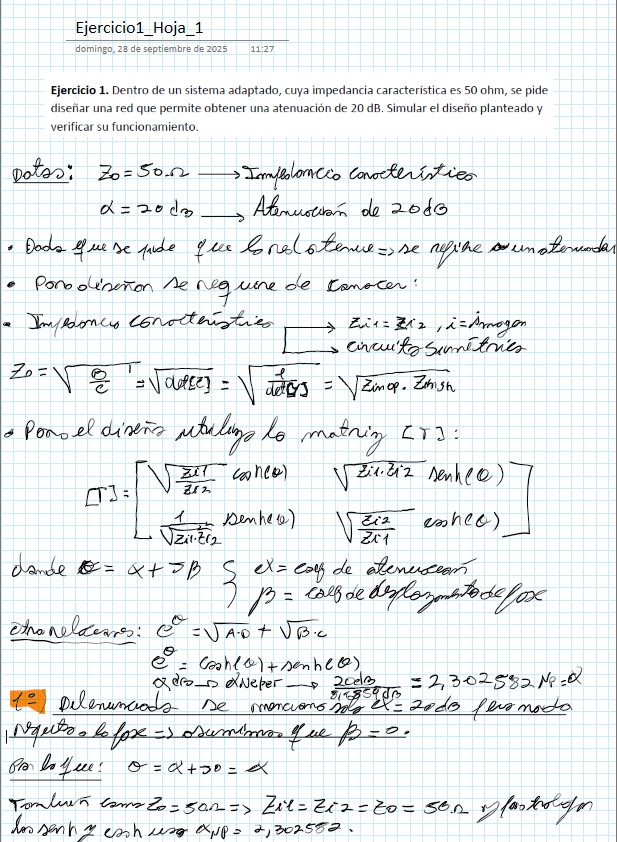 Ejercicio1_Hoja_1
domingo, 28 de septiembre de 2025 11:27
Ejercicio 1. Dentro de un sistema adaptado, cuya impedancia característica es 50 ohm, se pide
diseñar una red que permite obtener una atenuación de 20 dB. Simular el diseño planteado y
verificar su funcionamiento.
Datos: Zo = 50Ω → Impedancia característica
α = 20 dB → Atenuación de 20dB
• Dado que se pide que la red atenue => se refiere a un atenuador
• Para diseñar se requiere de conocer:
• Impedancia característica → Zi1 = Zi2, i = imagen
→ circuito simétrico
Zo = √(B/C) = √det[Z] = √(1/det[Y]) = √(Zinop. Zinsh)
• Para el diseño utilizo la matriz [T]:
[T] = [ √(Zi1/Zi2) cosh(θ) √(Zi1.Zi2) senh(θ)
1/√(Zi1.Zi2) senh(θ) √(Zi2/Zi1) cosh(θ) ]
donde θ = α + Jβ { α = coef de atenuación
β = coef de desplazamiento de fase
otra relaciones: e^θ = √(A.D) + √(B.C)
e^θ = cosh(θ) + senh(θ)
α dB → α Neper → 20dB/8,6859dB = 2,302582 Np = α
1º Del enunciado se menciona solo α = 20dB pero nada
respecto a la fase => asumimos que β = 0.
Por lo que: θ = α + J0 = α
También como Zo = 50Ω => Zi1 = Zi2 = Zo = 50Ω y para trabajar
los senh y cosh uso αNP = 2,302582.